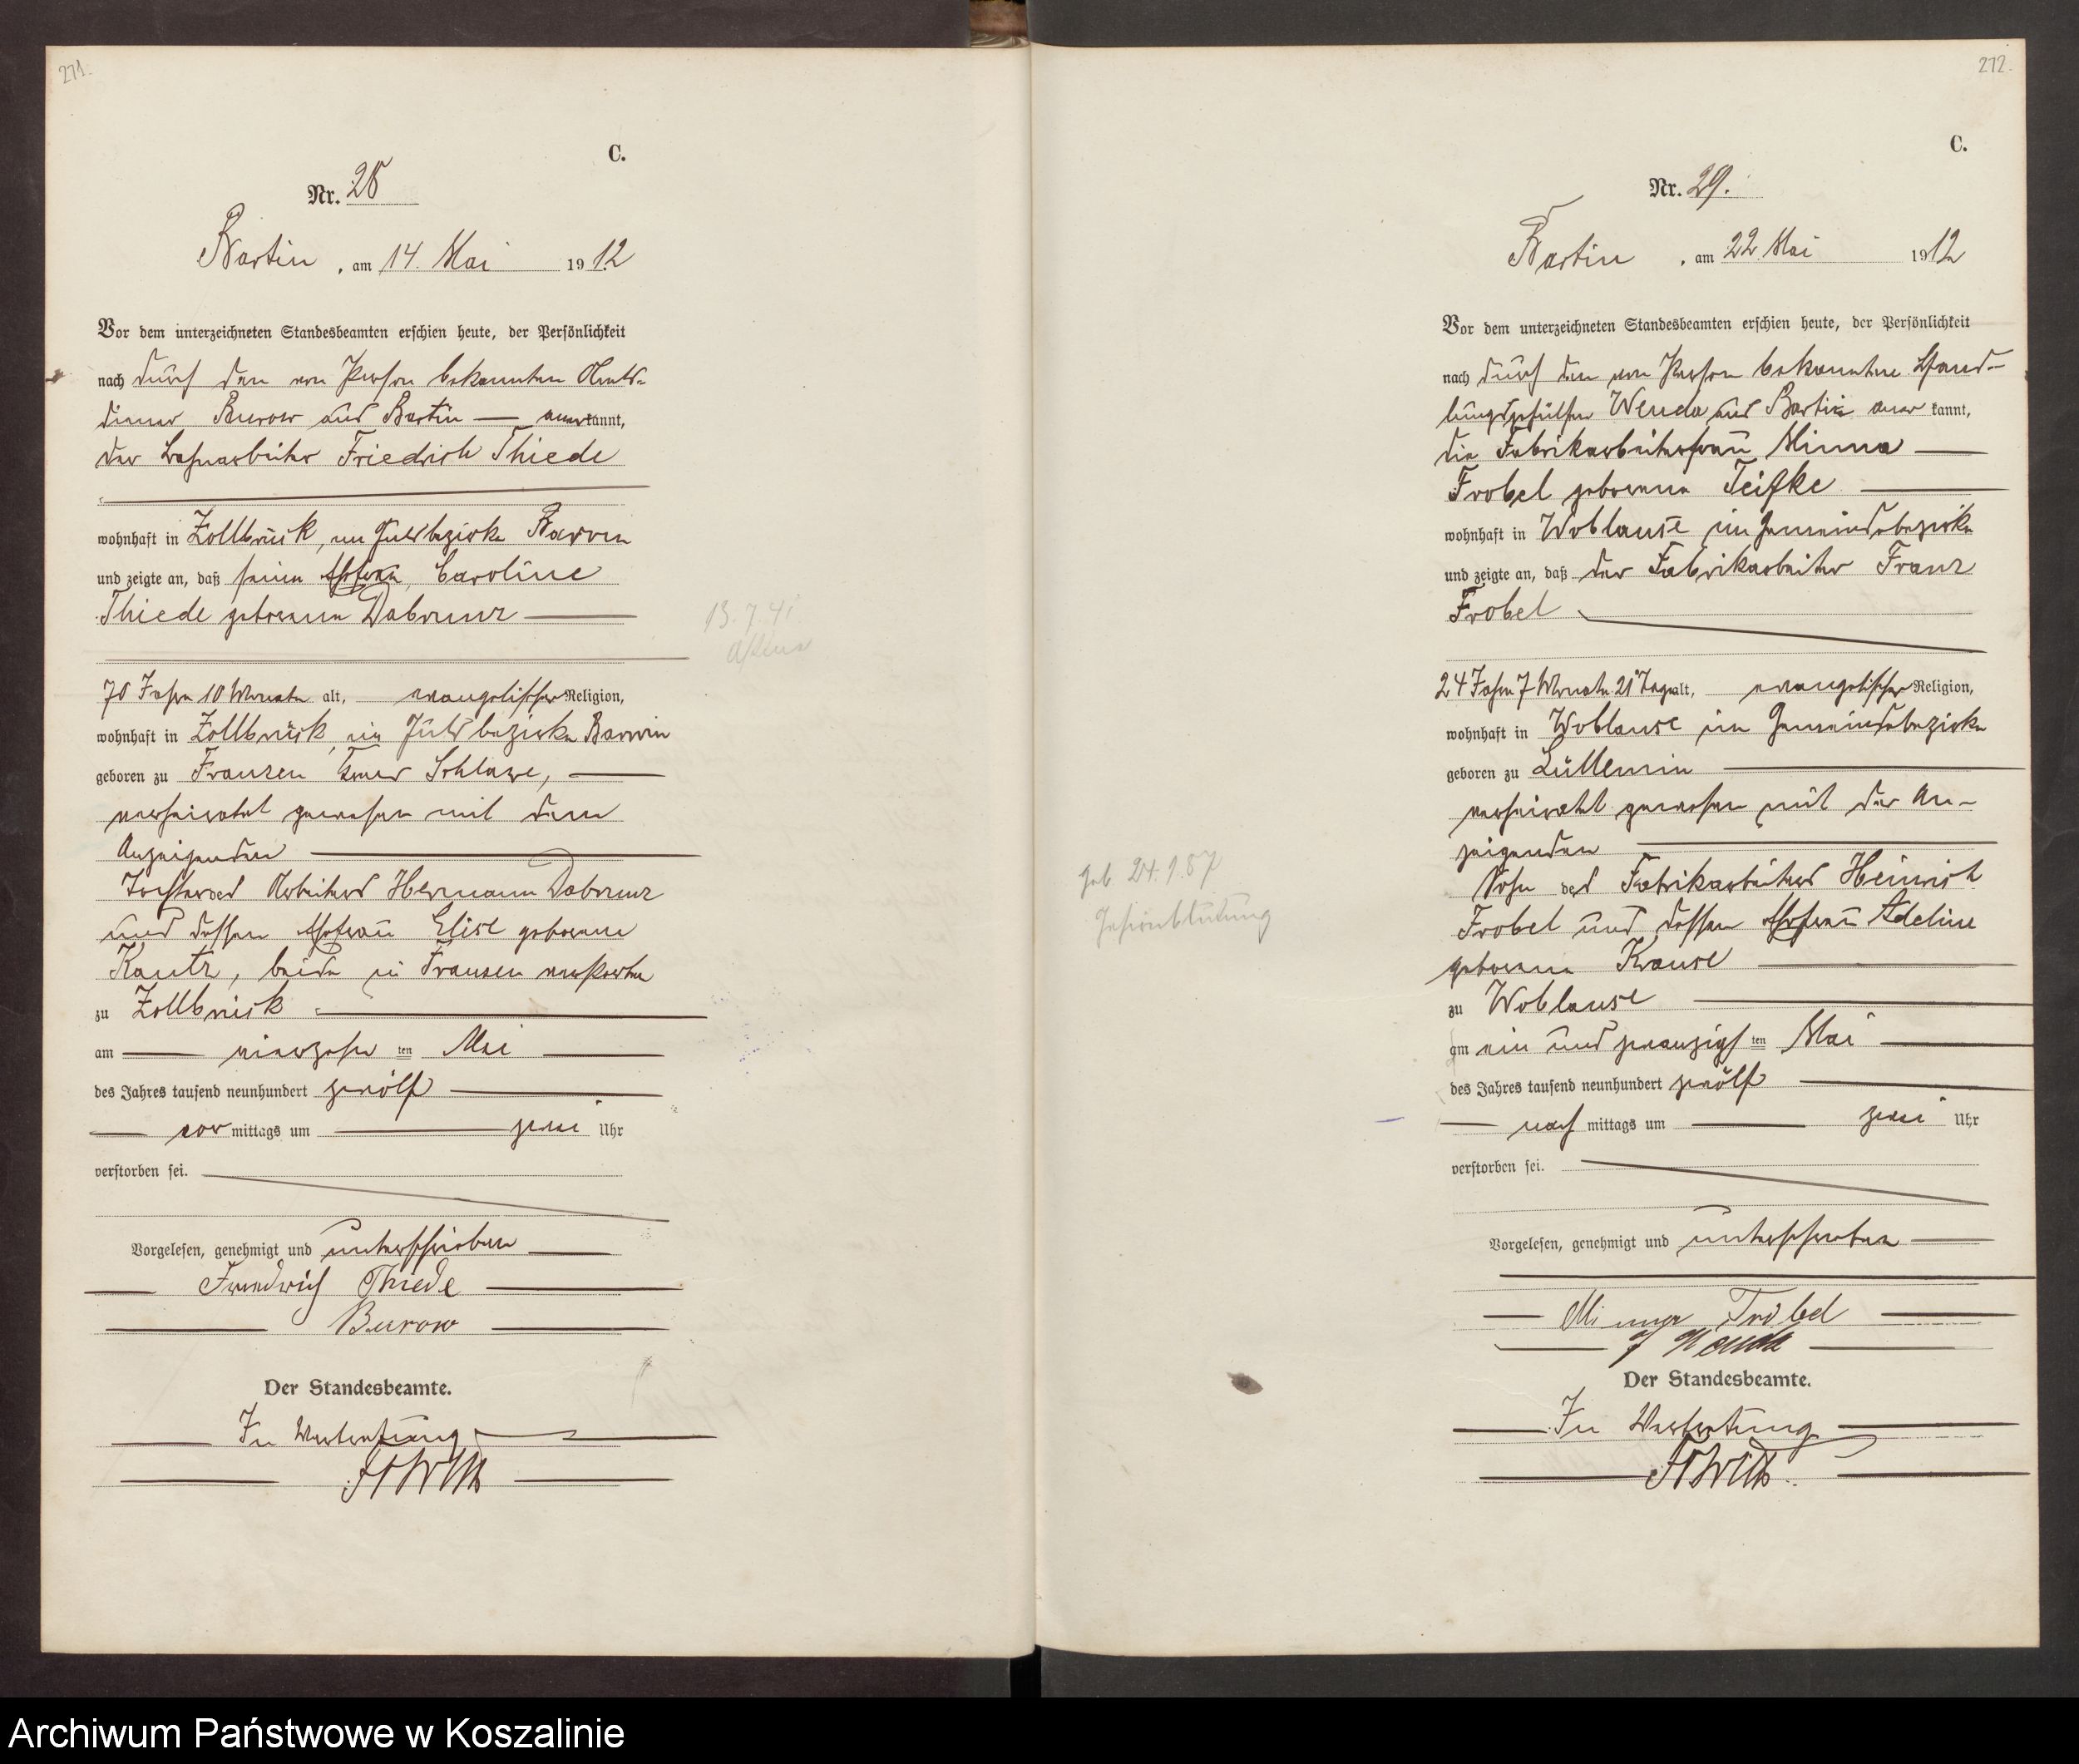 271.
C.
Nr. 28
Bartin, am 14. Mai 1912
Vor dem unterzeichneten Standesbeamten erschien heute, der Persönlichkeit
nach durch den von Person bekannten Amts-
diener Burow aus Bartin — anerkannt,
der Bahnarbeiter Friedrich Thiede
wohnhaft in Zollbrück, im Gutsbezirke Barvin
und zeigte an, daß seine Ehefrau, Caroline
Thiede geborene
13.7.41
Asthma
70 Jahre 10 Monate alt, evangelischer Religion,
wohnhaft in Zollbrück, im Gutsbezirke Barvin
geboren zu Franzen Kreis Schlawe,
verheiratet gewesen mit dem
Anzeigenden
Tochter des Arbeiters Hermann
und dessen Ehefrau Elise geborene
Kautz, beide in Franzen verstorben
zu Zollbrück
am — vierzehn ten Mai
des Jahres tausend neunhundert zwölf
vor mittags um — zwei Uhr
verstorben sei.
Vorgelesen, genehmigt und unterschrieben
Friedrich Thiede
Burow
Der Standesbeamte.
In Vertretung
272.
C.
Nr. 29.
Bartin, am 22. Mai 1912
Vor dem unterzeichneten Standesbeamten erschien heute, der Persönlichkeit
nach durch den von Person bekannten Hand-
lungsgehülfen Wenda aus Bartin anerkannt,
die Fabrikarbeiterfrau Minna
Frobel geborene Teifke
wohnhaft in Woblanse im Gemeindebezirke
und zeigte an, daß der Fabrikarbeiter Franz
Frobel
24 Jahre 7 Monate 21 Tage alt, evangelischer Religion,
wohnhaft in Woblanse im Gemeindebezirke
geboren zu Lüllemin
verheiratet gewesen mit der An-
zeigenden
geb. 24.9.87
Gehirnblutung
Sohn des Fabrikarbeiters Heinrich
Frobel und dessen Ehefrau Adeline
geborene Krause
zu Woblanse
am ein und zwanzigs ten Mai
des Jahres tausend neunhundert zwölf
nach mittags um — zwei Uhr
verstorben sei.
Vorgelesen, genehmigt und unterschrieben
Minna Frobel
Wenda
Der Standesbeamte.
In Vertretung
Archiwum Państwowe w Koszalinie